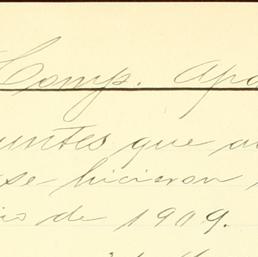 Comp. Apo
untes que a
se hicieron
io de 1909.